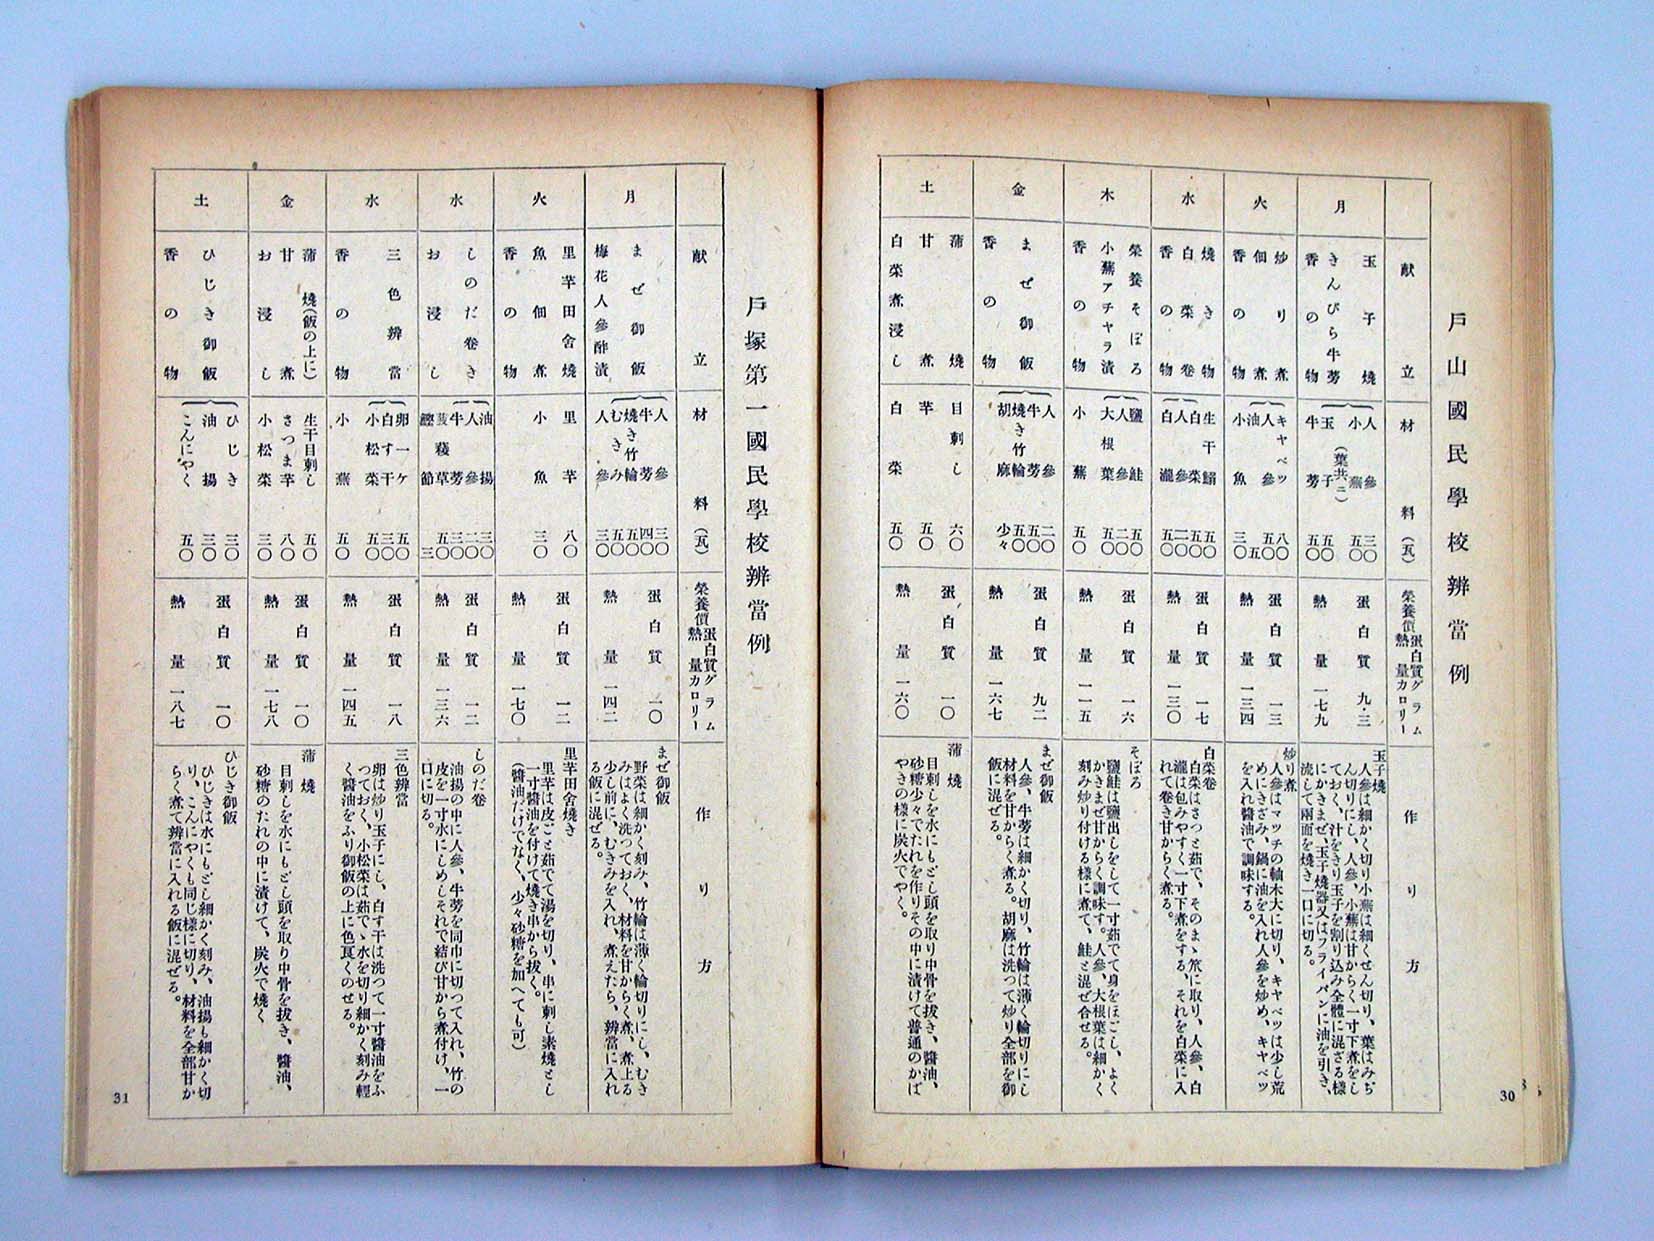 戶山國民學校辨當例
献立
材料(瓦)
榮養價 蛋白質グラム 熱量カロリー
作り方
月
玉子燒
きんぴら牛蒡
香の物
人參 三〇
小蕪(葉共ニ) 五〇
玉子 五〇
牛蒡 五〇
蛋白質 九・三
熱量 一七九
玉子燒
人參は細かく切り小蕪は細くせん切り、葉はみぢ
ん切りにし、人參、小蕪は甘からく一寸下煮をし
ておく、汁をきり玉子を割り込み全體に混ざる樣
にかきまぜ、玉子燒器又はフライパンに油を引き、
流して兩面を燒き一口に切る。
火
炒り煮
佃煮
香の物
キャベツ 八〇
人參 五〇
油 五
小魚 三〇
蛋白質 一三
熱量 一三四
炒り煮
人參はマツチの軸木大に切り、キャベツは少し荒
めにきざみ、鍋に油を入れ人參を炒め、キャベツ
を入れ醬油で調味する。
水
燒き物
白菜卷
香の物
生干鰯 五〇
白菜 五〇
人參 二〇
白瀧 五〇
蛋白質 一七
熱量 一三〇
白菜卷
白菜はさつと茹で、そのまゝ笊に取り、人參、白
瀧は包みやすく一寸下煮をする、それを白菜に入
れて卷き甘からく煮る。
木
榮養そぼろ
小蕪アチャラ漬
香の物
鹽鮭 五〇
人參 二〇
大根葉 三〇
小蕪 五〇
蛋白質 一六
熱量 一一五
そぼろ
鹽鮭は鹽出しをして一寸茹でて身をほごし、よく
かきまぜ甘からく調味す。人參、大根葉は細かく
刻み炒り付ける樣に煮て、鮭と混ぜ合せる。
金
まぜ御飯
香の物
人參 二〇
牛蒡 五〇
燒き竹輪 五〇
胡麻 少々
蛋白質 九二
熱量 一六七
まぜ御飯
人參、牛蒡は細かく切り、竹輪は薄く輪切りにし
材料を甘からく煮る。胡麻は洗つて炒り全部を御
飯に混ぜる。
土
蒲燒
甘煮
白菜煮浸し
目刺し 六〇
芋 五〇
白菜 五〇
蛋白質 一〇
熱量 一六〇
蒲燒
目刺しを水にもどし頭を取り中骨を拔き、醬油、
砂糖少々でたれを作りその中に漬けて普通のかば
やきの樣に炭火でやく。
30
戶塚第一國民學校辨當例
献立
材料(瓦)
榮養價 蛋白質グラム 熱量カロリー
作り方
月
まぜ御飯
梅花人參酢漬
人參 三〇
牛蒡 四〇
燒き竹輪 五〇
むきみ 五〇
人參 三〇
蛋白質 一〇
熱量 一四二
まぜ御飯
野菜は細かく刻み、竹輪は薄く輪切りにし、むき
みはよく洗つておく、材料を甘からく煮、煮上る
少し前に、むきみを入れ、煮えたら、辨當に入れ
る飯に混ぜる。
火
里芋田舍燒
魚佃煮
香の物
里芋 八〇
小魚 三〇
蛋白質 一二
熱量 一七〇
里芋田舍燒き
里芋は皮ごと茹でて湯を切り、串に刺し素燒とし
一寸醬油を付けて燒き串から拔く。
(醬油だけでなく、少々砂糖を加へても可)
水
しのだ卷き
お浸し
油揚 三〇
人參 二〇
牛蒡 三〇
菠薐草 五〇
鰹節 三
蛋白質 一二
熱量 一三六
しのだ卷
油揚の中に人參、牛蒡を同巾に切つて入れ、竹の
皮を一寸水にしめしそれで結び甘から煮付け、一
口に切る。
水
三色辨當
香の物
卵一ケ 五〇
白す干 三〇
小松菜 五〇
小蕪 五〇
蛋白質 一八
熱量 一四五
三色辨當
卵は炒り玉子にし、白す干は洗つて一寸醬油をふ
つておく、小松菜は茹でゝ水を切り細かく刻み輕
く醬油をふり御飯の上に色良くのせる。
金
蒲燒(飯の上に)
甘煮
お浸し
生干目刺し 五〇
さつま芋 八〇
小松菜 三〇
蛋白質 一〇
熱量 一七八
蒲燒
目刺しを水にもどし頭を取り中骨を拔き、醬油、
砂糖のたれの中に漬けて、炭火で燒く
土
ひじき御飯
香の物
ひじき 三〇
油揚 三〇
こんにやく 五〇
蛋白質 一〇
熱量 一八七
ひじき御飯
ひじきは水にもどし細かく刻み、油揚も細かく切
り、こんにやくも同じ樣に切り、材料を全部甘か
らく煮て辨當に入れる飯に混ぜる。
31